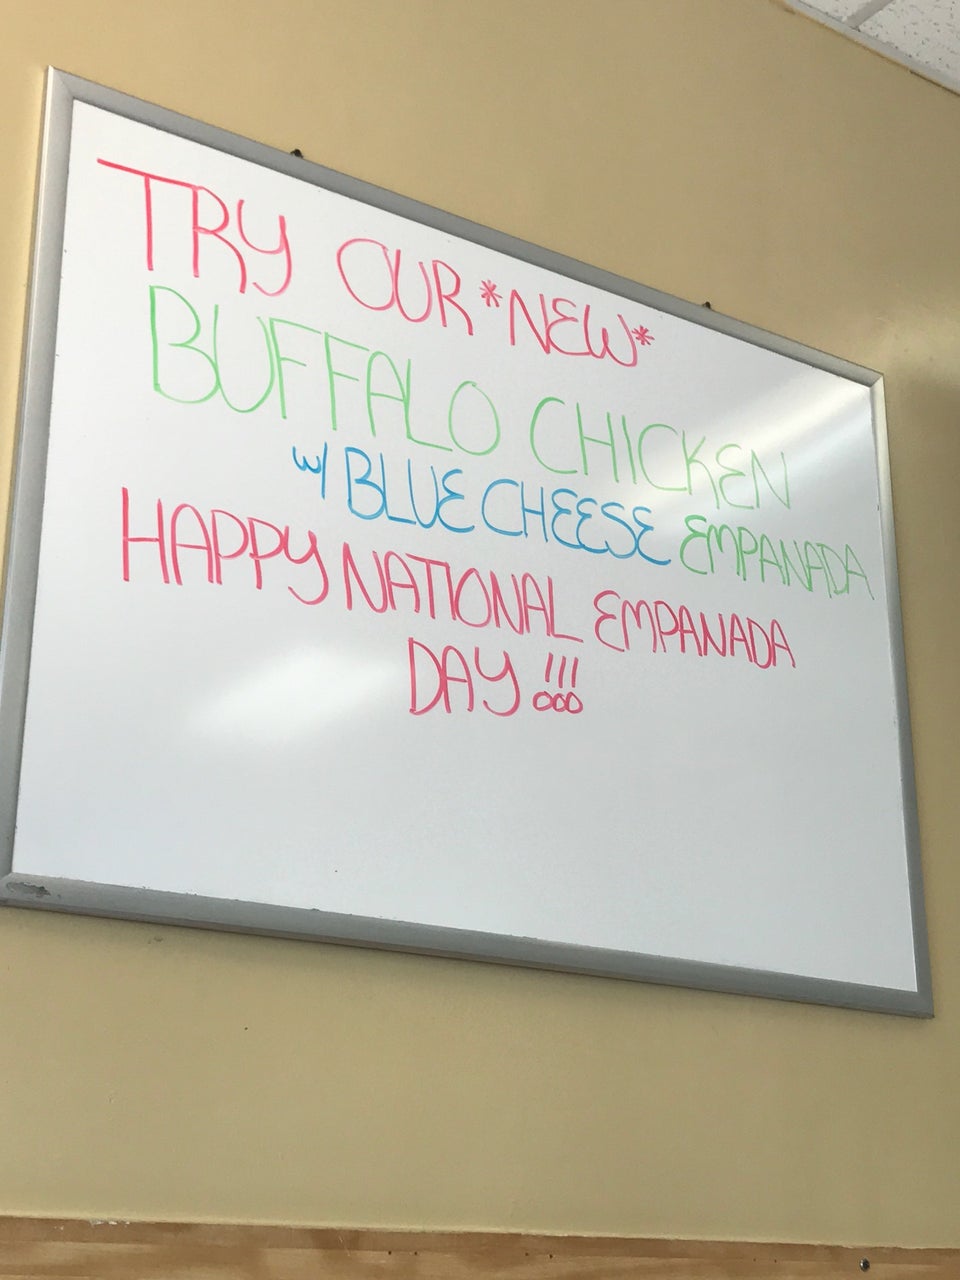 TRY OUR *NEW*
BUFFALO CHICKEN
w/ BLUE CHEESE EMPANADA
HAPPY NATIONAL EMPANADA
DAY !!!